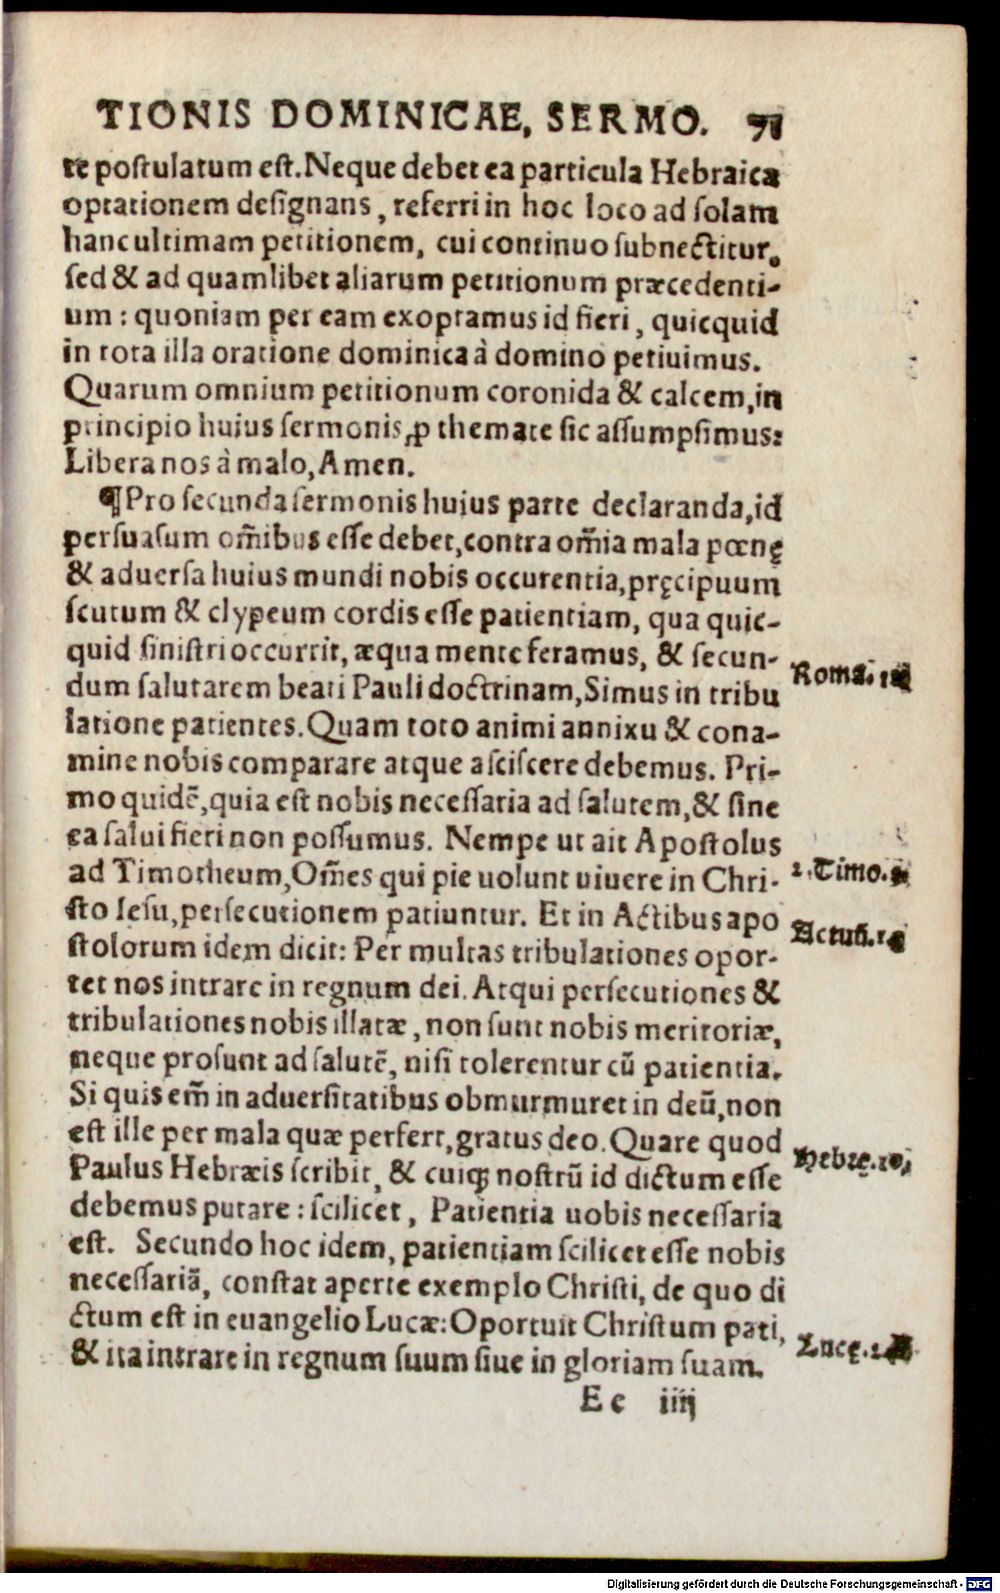 TIONIS DOMINICAE, SERMO. 71
te postulatum est. Neque debet ea particula Hebraica
optationem designans, referri in hoc loco ad solam
hanc ultimam petitionem, cui continuo subnectitur.
sed & ad quamlibet aliarum petitionum præcedenti-
um: quoniam per eam exoptamus id fieri, quicquid
in tota illa oratione dominica à domino petiuimus.
Quarum omnium petitionum coronida & calcem, in
principio huius sermonis, ꝓ themate sic assumpsimus:
Libera nos à malo, Amen.
¶ Pro secunda sermonis huius parte declaranda, id
persuasum om̃ibus esse debet, contra om̃ia mala pœnę
& aduersa huius mundi nobis occurentia, pręcipuum
scutum & clypeum cordis esse patientiam, qua quic-
quid sinistri occurrit, æqua mente feramus, & secun-
dum salutarem beati Pauli doctrinam, Simus in tribu
Roma. 12
latione patientes. Quam toto animi annixu & cona-
mine nobis comparare atque asciscere debemus. Pri-
mo quidē, quia est nobis necessaria ad salutem, & sine
ea salui fieri non possumus. Nempe ut ait Apostolus
ad Timotheum, Om̃es qui pie uolunt uiuere in Chri-
2. Timo.
sto Iesu, persecutionem patiuntur. Et in Actibus apo
Actuū. 14
stolorum idem dicit: Per multas tribulationes opor-
tet nos intrare in regnum dei. Atqui persecutiones &
tribulationes nobis illatæ, non sunt nobis meritoriæ,
neque prosunt ad salutē, nisi tolerentur cū patientia.
Si quis em̃ in aduersitatibus obmurmuret in deū, non
est ille per mala quæ perfert, gratus deo. Quare quod
Paulus Hebræis scribit, & cuiqꝫ nostrū id dictum esse
Hebrę. 10,
debemus putare: scilicet, Patientia uobis necessaria
est. Secundo hoc idem, patientiam scilicet esse nobis
necessariā, constat aperte exemplo Christi, de quo di
ctum est in euangelio Lucæ: Oportuit Christum pati,
& ita intrare in regnum suum siue in gloriam suam.
Lucę. 24
Ee iiij
Digitalisierung gefördert durch die Deutsche Forschungsgemeinschaft - DFG